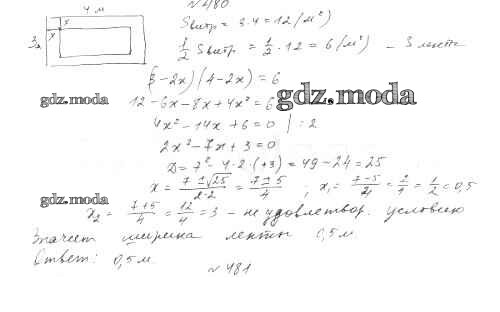 №480
4 м
x
x
3м
Sвитр = 3·4 = 12 (м²)
1/2 Sвитр = 1/2 · 12 = 6 (м²) – S ленты
(3 – 2x)(4 – 2x) = 6
gdz.moda
12 – 6x – 8x + 4x² = 6
gdz.moda
4x² – 14x + 6 = 0 | : 2
2x² – 7x + 3 = 0
D = 7² – 4·2·(+3) = 49 – 24 = 25
x = (7 ± √25)/(2·2) = (7 ± 5)/4 ; x₁ = (7 – 5)/4 = 2/4 = 1/2 = 0,5
gdz.moda
x₂ = (7 + 5)/4 = 12/4 = 3 – не удовлетвор. условию
Значит ширина ленты 0,5 м
Ответ: 0,5 м.
№481